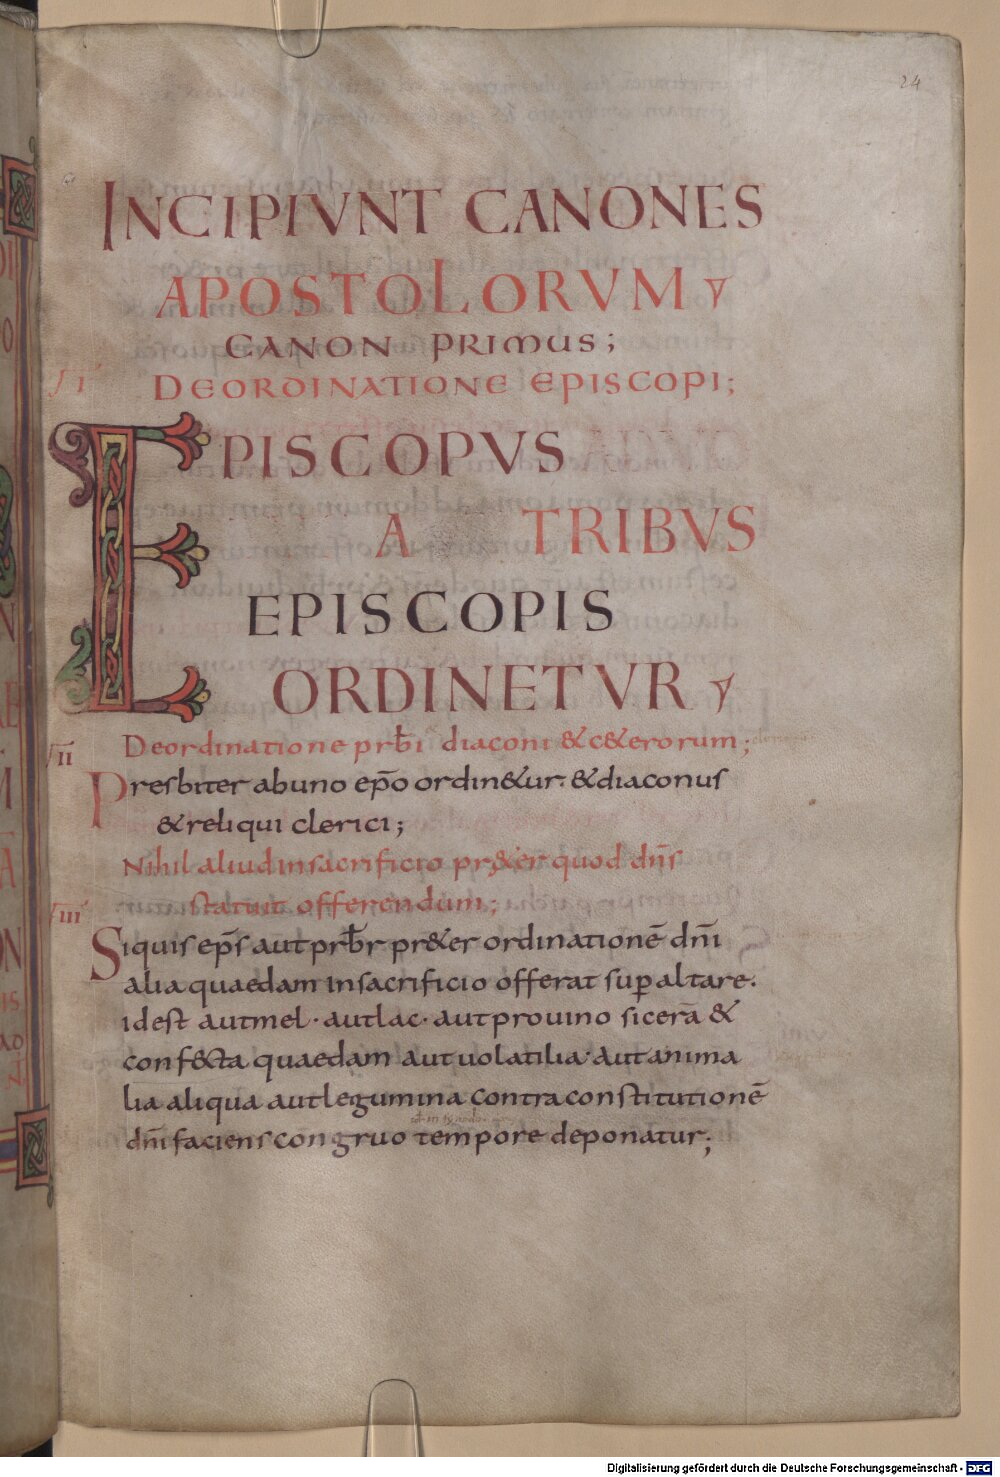 24
INCIPIVNT CANONES
APOSTOLORVM
CANON PRIMUS;
I
DEORDINATIONE EPISCOPI;
EPISCOPVS
A TRIBVS
EPISCOPIS
ORDINETVR
Deordinatione prb̄i diaconi &c&erorum;
II
Presbiter abuno ep̄o ordin&ur. &diaconus
&reliqui clerici;
Nihil aliud insacrificio pr&er quod dn̄s
statuit offerendum;
III
Siquis ep̄s aut prb̄r pr&er ordinationē dn̄i
alia quaedam insacrificio offerat suꝑ altare.
idest aut mel · aut lac · aut prouino sicerā &
conf&cta quaedam aut uolatilia · aut anima
lia aliqua aut legumina contra constitutionē
dn̄i faciens congruo tempore deponatur;
Digitalisierung gefördert durch die Deutsche Forschungsgemeinschaft - DFG